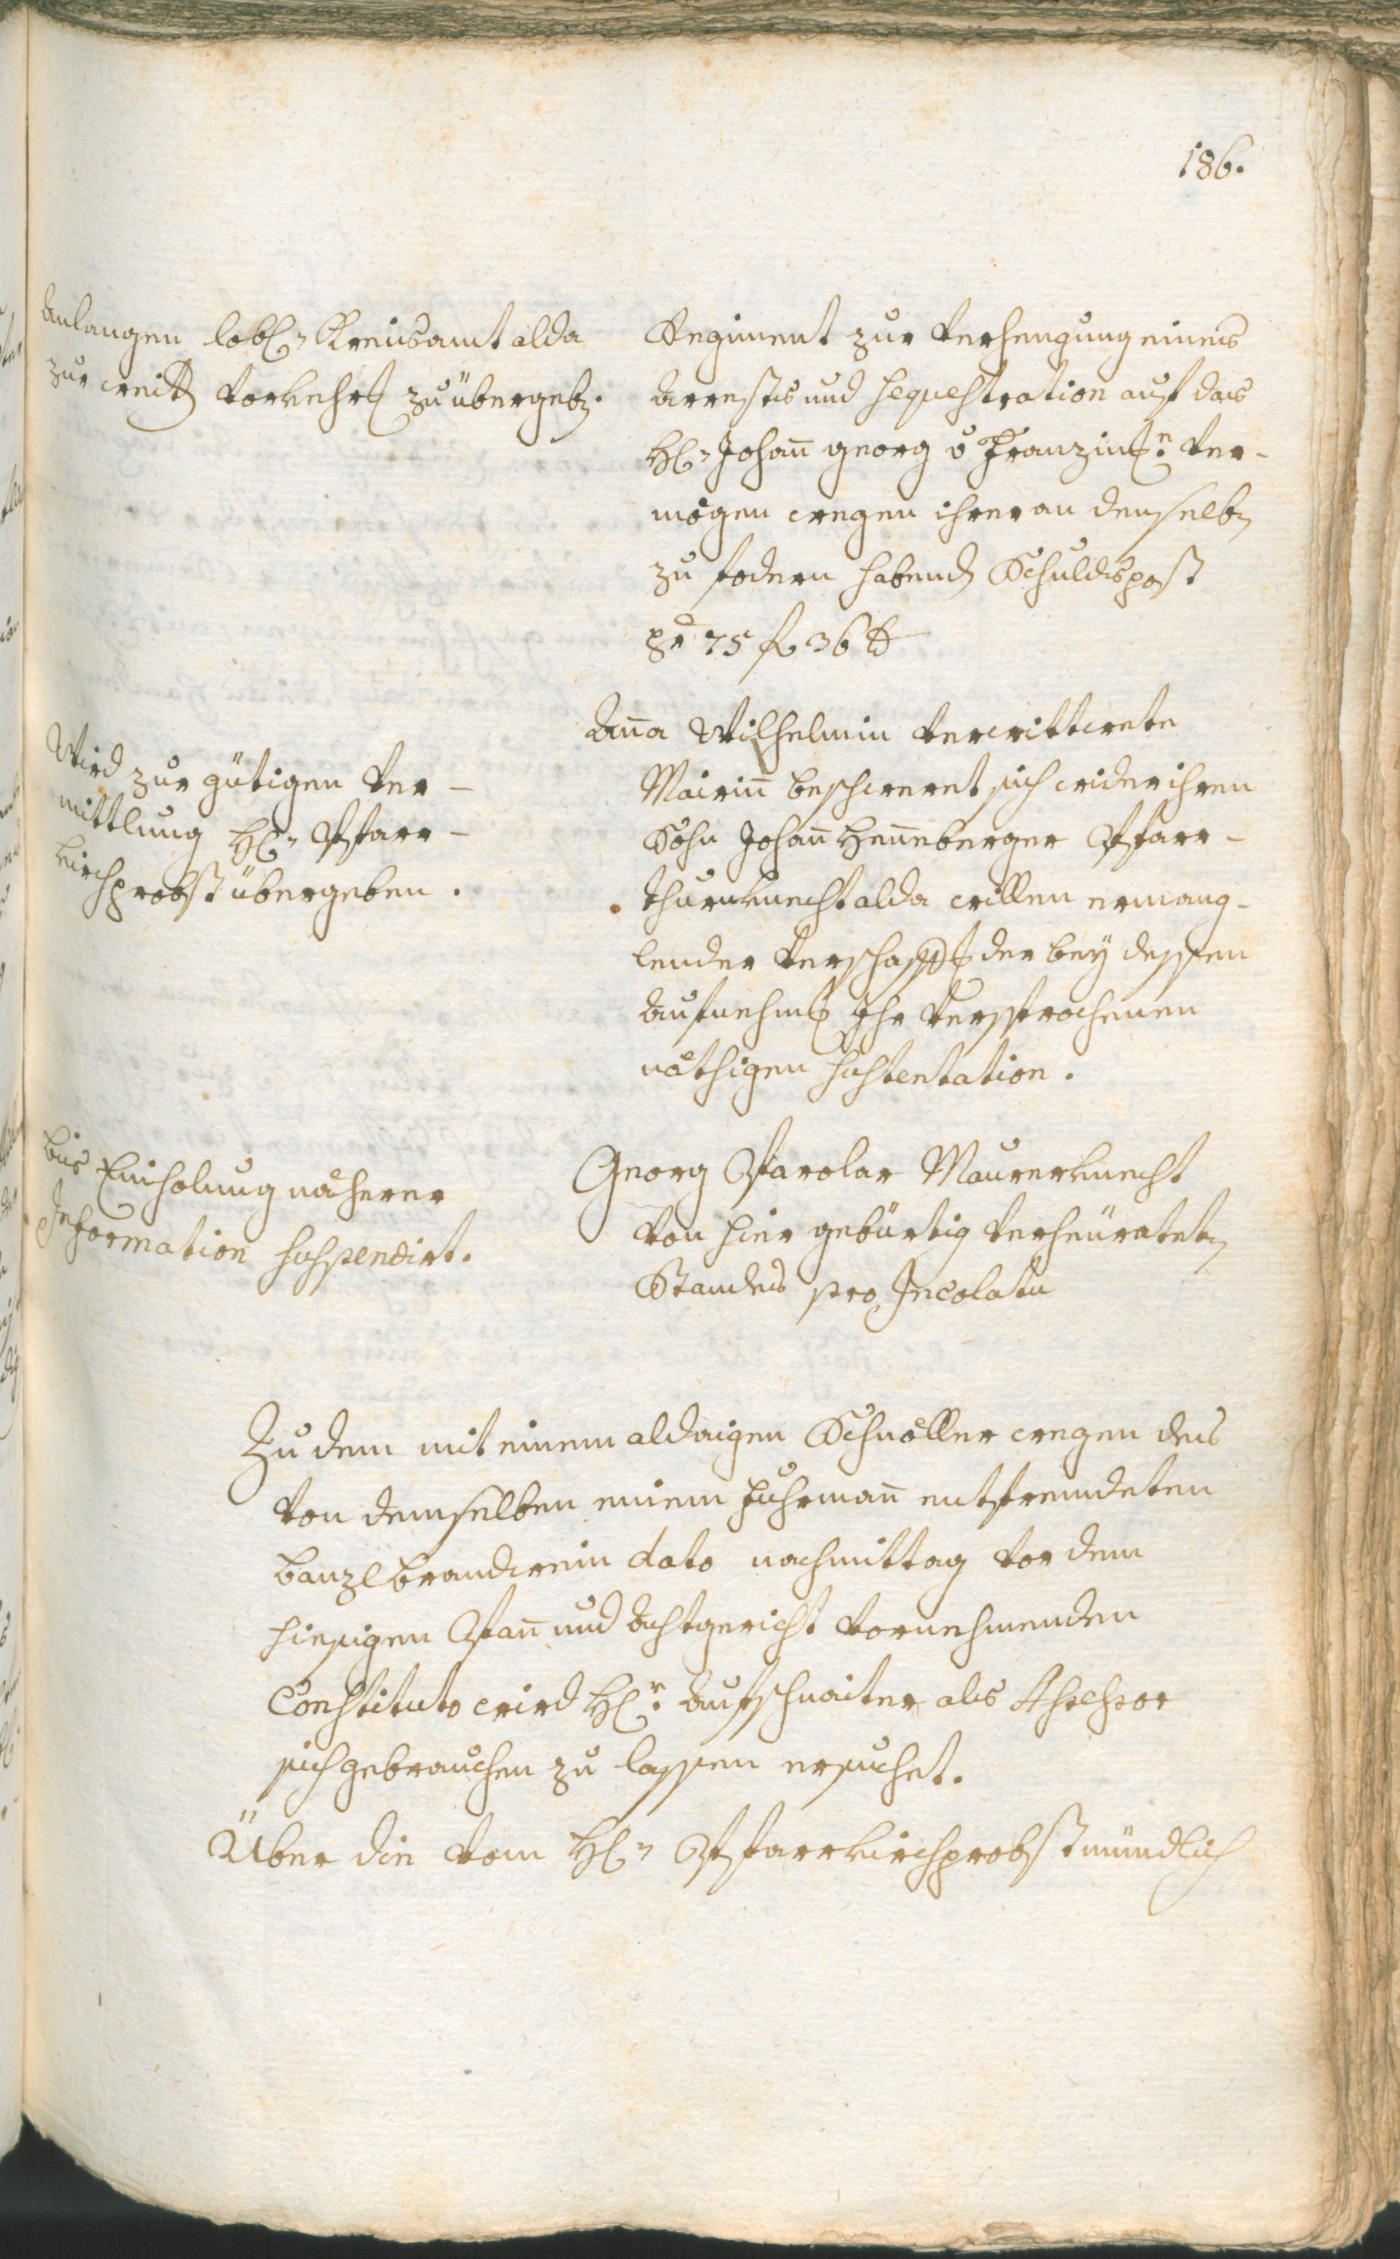 186.
Anlangen lobl: Kreisamt alda
zur weitt Vorkehrg zuübergebn.
Regiment zur Verhengung eines
Arrests und Sequestration auf das
H: Johan̄ Georg v Franzin Ver-
mögen wegen ihrer an demselbn
zu fodern habend Schuldspost
pr 75 f 36 x
Wird zur gütigen Ver-
mittlung H: Pfarr-
kirchprobst übergeben.
An̄a Wilhelmin verwittwete
Mairin̄ beschwerent sich wider ihren
Sohn Johan̄ Hen̄eberger Pfarr-
thurnknecht alda willen ermang-
lender Verschaffg der bey dessen
Aufnehmg Ihr versprochenen
nöthigen Sustentation.
bis Einholung näherer
Information suspendirt.
Georg Parolar Maurerknecht
von hier gebürtig verheüratetn
Standes pro Incolatu
Zu dem mit einem aldaigen Schnöller wegen des
von demselben einem Fuhrman̄ entfremdeten
banzl brandwein dato nachmittag vor dem
hiesigen Pan̄ und Achtgericht vornehmenden
Constituto wird H: Aufschnaiter als Assessor
sich gebrauchen zu lassen ersuchet.
Über die vom H: Pfarrkirchprobst mündlich